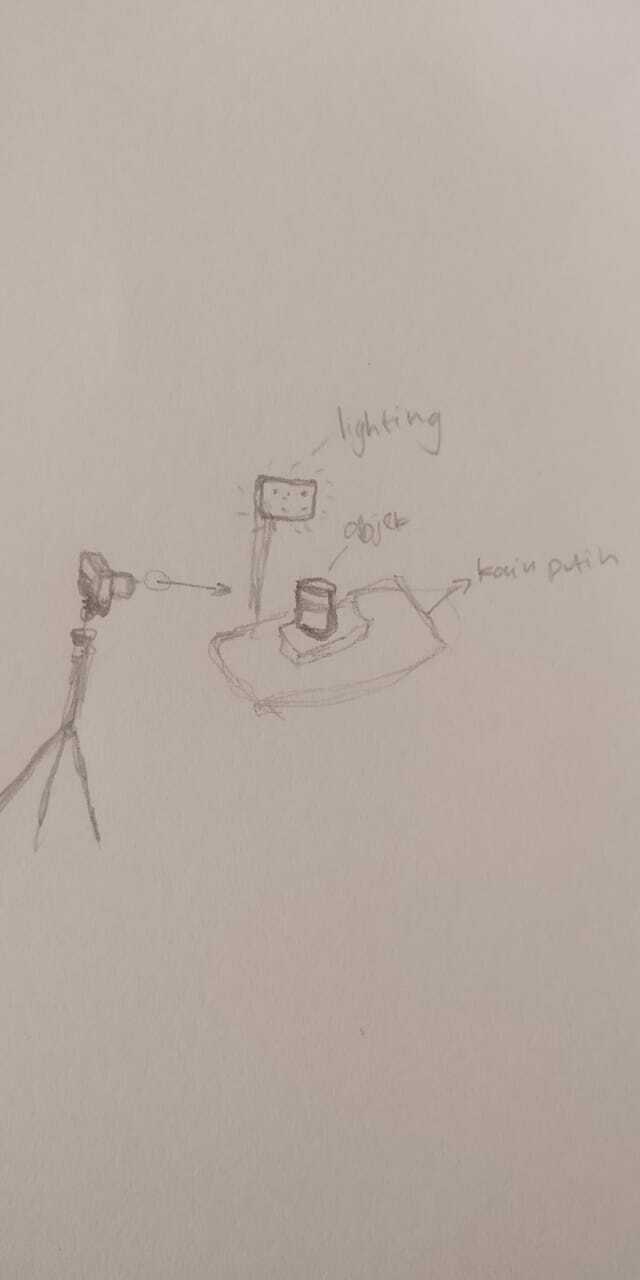 lighting
objek
kain putih